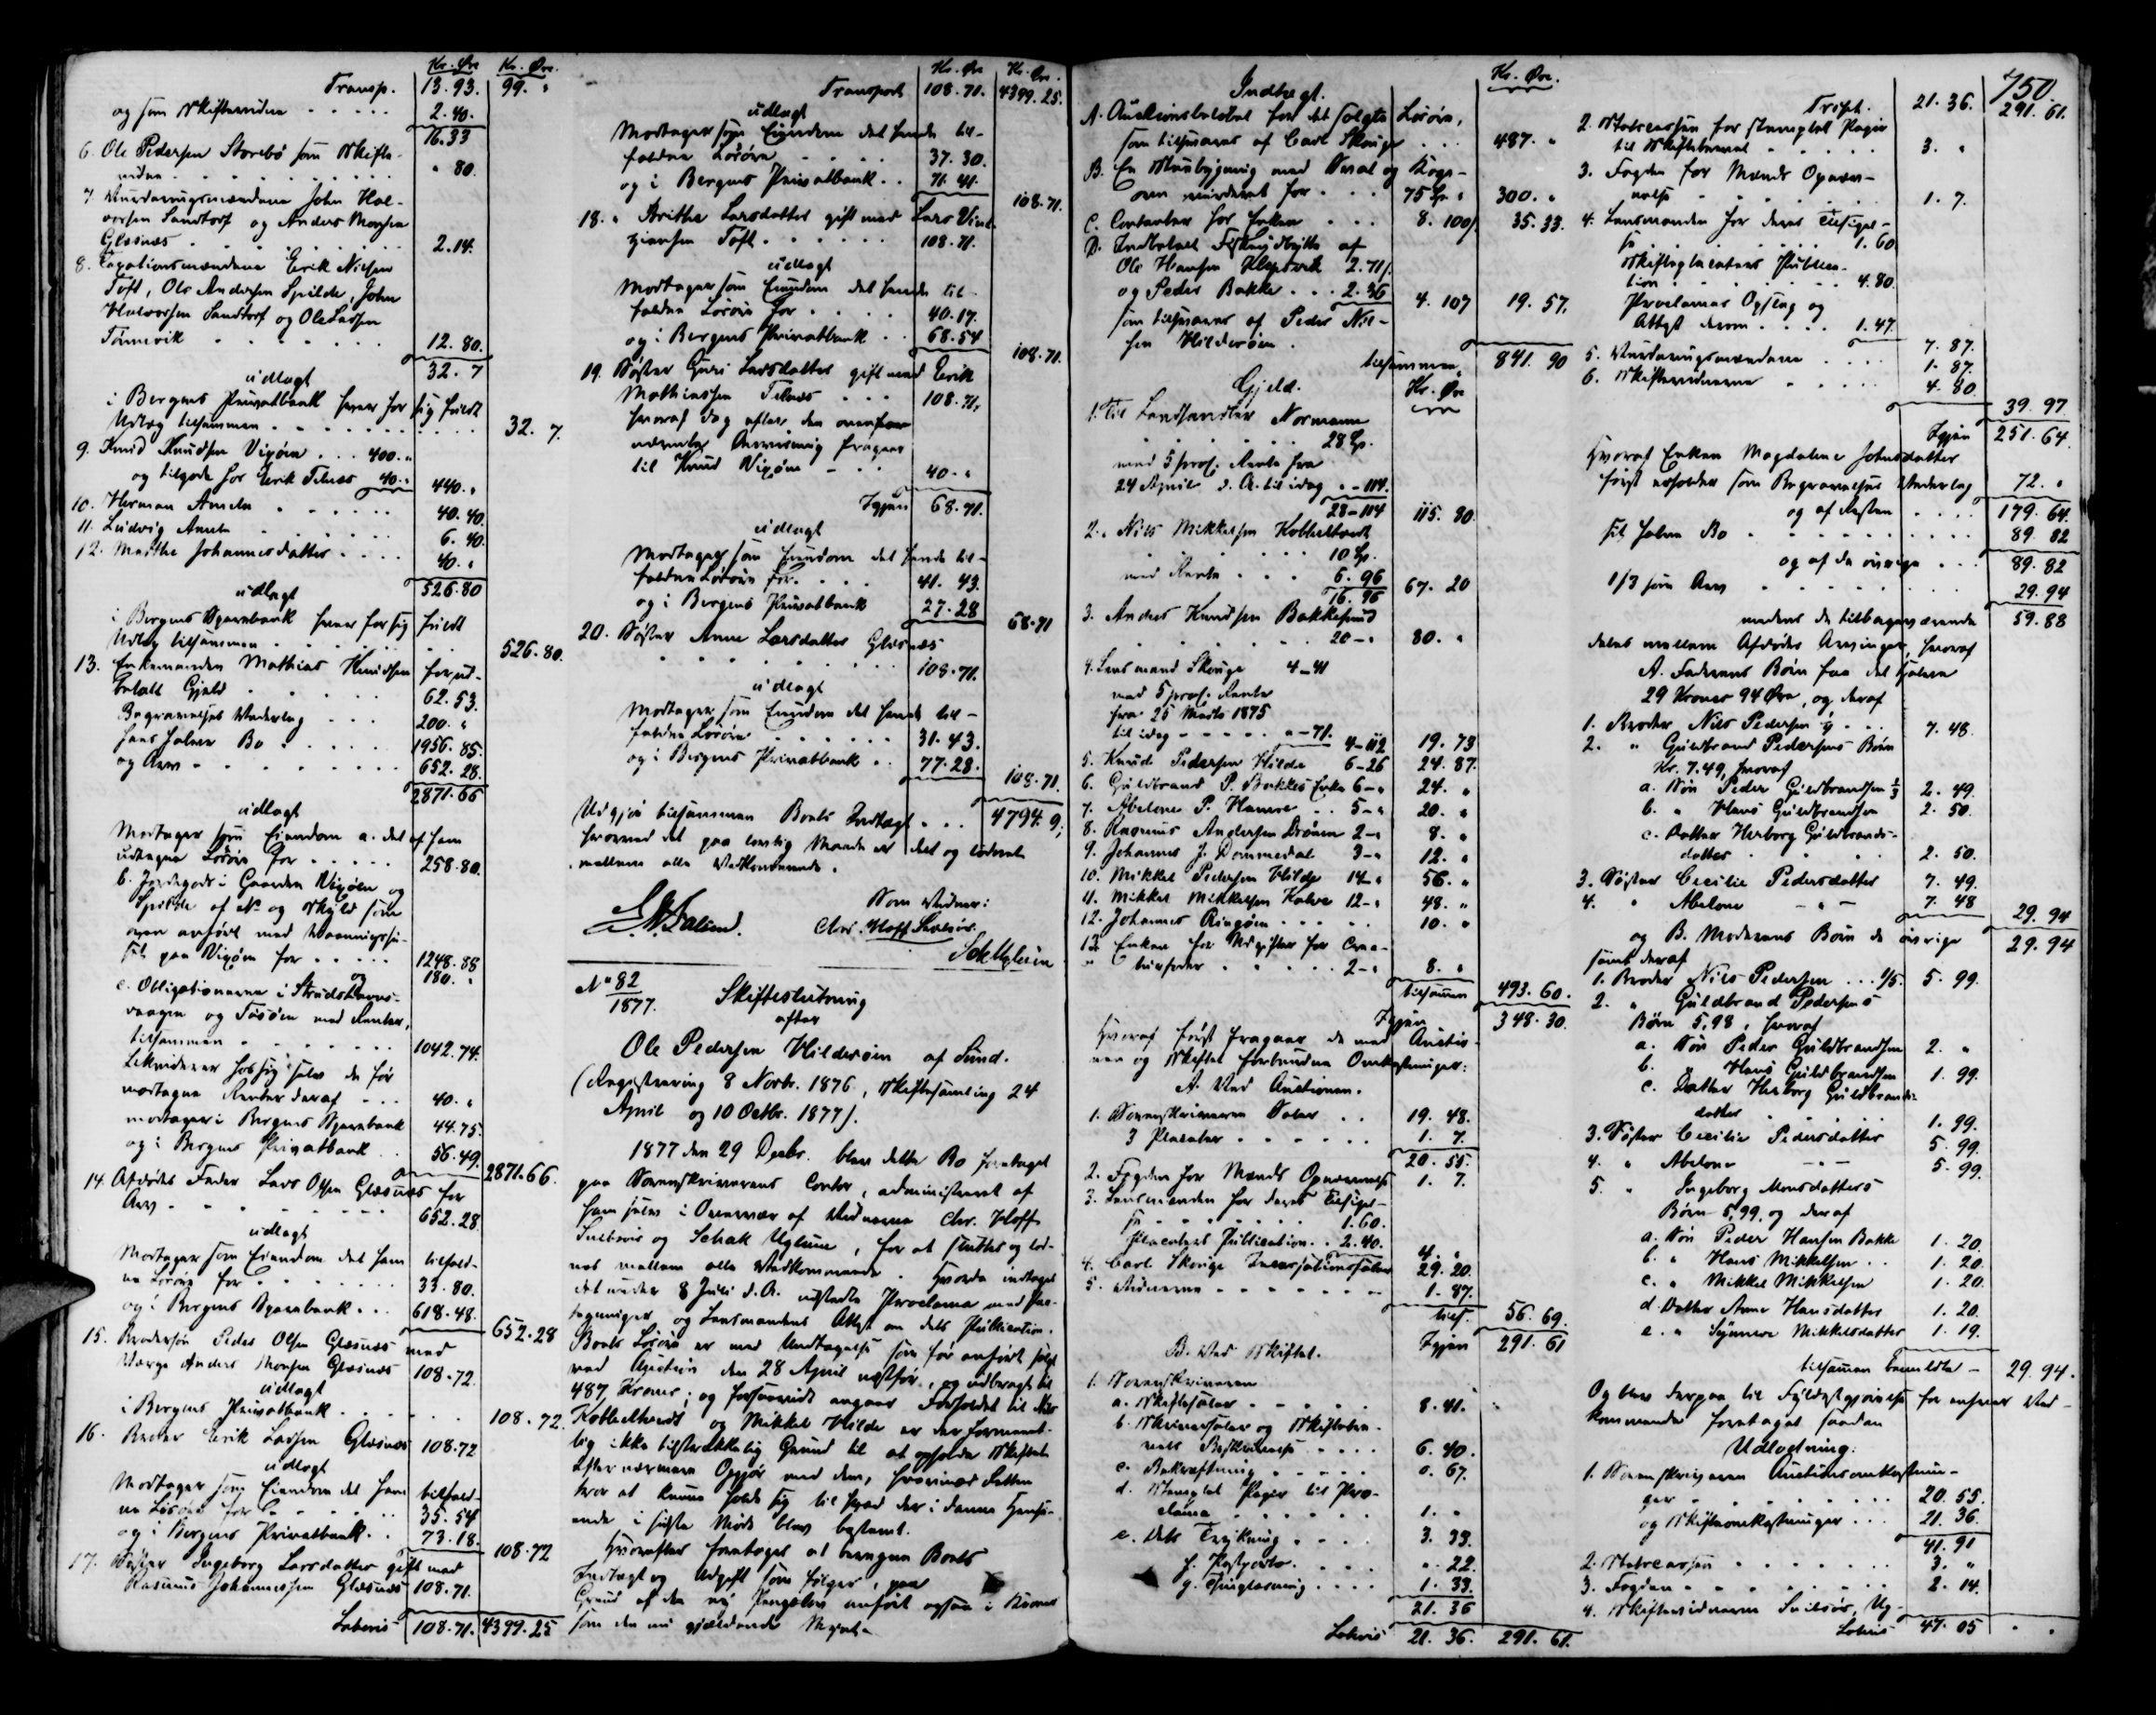 Kr. Øre Kr. Øre.
Transp. 13.93. 99. "
og som Skiftevidne 2.40.
16.33
6. Ole Pedersen Storebø som Skifte-
vidne " 80.
7. Vurderingsmændene John Hal-
vorsen Sandtorf og Anders Monsen
Glæsnæs 2.14.
8. Taxationsmændene Erik Nielsen
Toft, Ole Andersen Spilde, John
Halvorsen Sandtorf og Ole Larsen
Tømmervik 12.80.
32. 7
udlagt
i Bergens Privatbank hver for sig heelt
Udlæg tilsammen 32. 7.
9. Knud Knudsen Vixøen 400. "
og tilgode for Erik Telnæs 40. " 440. "
10. Herman Ameln 40.40.
11. Ludvig Ameln 6.40.
12. Marthe Johannesdatter 40. "
526.80
udlagt
i Bergens Sparebank hver for sig heelt
Udlæg tilsammen 526.80.
13. Enkemanden Mathias Knudsen forud-
betalt Gjeld 62.53.
Begravelses Vederlag 200. "
hans halve Bo 1956.85.
og Arv 652.28.
2871.66
udlagt
Modtager som Eiendom a. det af ham
udtagne Løsøre for 258.80.
b. Jordegods i Gaarden Vixøen og
Spilde af No og Skyld som
oven anført med Vaaningshu-
set paa Vixøen for 1248.88
og 180. "
c. Obligationerne i Strudshavns-
vaagen og Tøsøen med Renter,
tilsammen 1042.74.
Likviderer hos sig selv de før
modtagne Renter deraf 40. "
modtager i Bergens Sparebank 44.75.
og i Bergens Privatbank 56.49.
2871.66.
14. Afdødes Fader Lars Olsen Glæsnæs for
Arv 652.28.
udlagt
Modtager som Eiendom det ham tilfald-
ne Løsøre for 33.80.
og i Bergens Sparebank 618.48.
652.28
15. Brodersøn Peder Olsen Glæsnæs med
Værge Anders Monsen Glæsnæs 108.72.
udlagt
i Bergens Privatbank 108.72.
16. Broder Erik Larsen Glæsnæs 108.72
udlagt
Modtager som Eiendom det ham tilfald-
ne Løsøre for 35.54
og i Bergens Privatbank 73.18.
108.72
17. Søster Ingeborg Larsdatter gift med
Rasmus Johannessen Glæsnæs 108.71.
Lateris 108.71. 4399.25
Kr. Øre Kr. Øre.
Transport 108.71. 4399.25.
udlagt
Modtager som Eiendom det hende til-
faldne Løsøre 37.30.
og i Bergens Privatbank 71.41.
108.71.
18. " Brithe Larsdatter gift med Lars Vint-
zjansen Toft 108.71.
udlagt
Modtager som Eiendom det hende til-
faldne Løsøre for 40.17.
og i Bergens Privatbank 68.54
108.71.
19. Søster Guri Larsdatter gift med Erik
Mathiassen Telnæs 108.71.
hvoraf dog efter den ovenfor
nævnte Anvisning fragaar
til Knud Vixøen 40. "
Igjen 68.71.
udlagt
Modtager som Eiendom det hende til-
faldne Løsøre for 41.43.
og i Bergens Privatbank 27.28
68.71
20. Søster Anne Larsdatter Glæsnæs
108.71.
udlagt
Modtager som Eiendom det hende til-
faldne Løsøre 31.43.
og i Bergens Privatbank 77.28.
108.71.
Udgjør tilsammen Boets Indtægt 4794.9;
hvormed det paa lovlig Maade er deelt og loddnet
mellem alle Vedkommende.
Som Vidner:
Chr. Hoff Sulesøe.
No 82
1877.
Skifteslutning
efter
Ole Pedersen Hilderøen af Sund.
(Registrering 8 Novbr. 1876, Skiftesamling 24
April og 10 Octbr. 1877).
1877 den 29 Decbr. blev dette Bo foretaget
paa Sorenskriverens Contor, administreret af
ham selv i Overvær af Vidnerne Chr. Hoff
og Schak Ugleim, for at sluttes og lod-
nes mellem alle Vedkommende. Hvorda indtaget
det under 8 Juli d.A. udstedte Proclama med Paa-
tegninger og Lensmandens Attest om dets Publication.
Boets Løsøre er med Undtagelse som før anført solgt
ved Auction den 28 April næstfør, og udbragt til
487 Kroner; og forsaavidt angaar Forholdet til Nils
Kobbeltvedt og Mikkel Hilde er der formeent-
lig ikke tilstrækkelig Grund til at opholde Skiftets
efter nærmere Opgjør med dem, hvorimod Retten
tror at kunne holde sig til hvad der i denne Hense-
ende i sidste Møde blev bestemt.
Hvorefter foretoges at beregne Boets
Indtægt og Udgift som følger, paa
Grund af den ny Pengelov anført ogsaa i Kroner
som den nu gjældende Mynt.
Indtægt. Kr. Øre.
A. Auctionsbeløbet for det solgte Løsøre,
som tilsvares af Carl Skouge 487. "
B. En Stuebygning med Sval og Koge-
ovn vurderet for 75 Sp " 300. "
C. Contanter hos Enken 8. 100/ 35.33.
D. Indbetalt Fiskeudbytte af
Ole Hansen Klepsvik 2.71/.
og Peder Bakke 2.36 4. 107 19.57.
som tilsvares af Peder Nil-
sen Hilderøen.
tilsammen 841.90
Gjeld. Kr. Øre
1. Til Landhandler Normann
28 Sp.
med 5 proC. Rente fra
24 April d.A. til idag " - 114.
28-114 115.80.
2. " Nils Mikkelsen Kobbeltvedt
10 Sp.
med Rente 6.96
16.96 67.20
3. Anders Knudsen Bakkesund
20 - " 80. "
4. Lensmand Skouge 4-41
med 5 proC. Rente
fra 25 Marts 1875
til idag " - 71.
4-112 19.73
5. Knud Pedersen Hilde 6-26 24.87.
6. Guldbrand P. Bakkes Enke 6-" 24. "
7. Abelone P. Hamre 5-" 20. "
8. Rasmus Andersen Drønen 2-" 8. "
9. Johannes J. Dommedal 3-" 12. "
10. Mikkel Pedersen Hilde 14-" 56. "
11. Mikkel Mikkelsen Kalve 12-" 48. "
12. Johannes Ringøen 10. "
13. Enken for Udgifter for Crea-
turfoder 2-" 8. "
tilsammen 493.60.
Igjen 348.30.
Hvoraf først fragaar de med Auctio-
nen og Skiftet forbundne Omkostninger:
A. Ved Auctionen.
1. Sorenskriveren Salær 19.48.
3 Placater 1. 7.
20.55.
2. Fogden for Mænds Opnævnelse 1. 7.
3. Lensmanden for deres Tilsigel-
se 1.60.
Placatens Publication 2.40.
4. "
4. Carl Skouge Incassationssalær 29.20.
5. Vidnerne 1.87.
tils. 56.69.
B. Ved Skiftet. Igjen 291.61
1. Sorenskriveren
a. Skiftesalær 8.41.
b. Skriversalær og Skiftebre-
vets Beskrivelse 6.40.
c. Bekræftning 0.67.
d. Stemplet Papir til Pro-
clama 1. "
e. dets Trykning 3.33.
f. Postporto ". 22.
g. Thinglæsning 1.33.
21.36
Lateris 21.36. 291.61.
750.
Trspt. 21.36. 291.61.
2. Statscassen for stemplet Papir
til Skiftebrevet 3. "
3. Fogden for Mænds Opnæv-
nelse 1. 7.
4. Lensmanden for deres Tilsigel-
se 1.60
Skifteplacatens Publica-
tion 4.80.
Proclamas Opslag og
Attest derom 1.47.
7.87.
5. Vurderingsmændene 1.87.
6. Skiftevidnerne 4.80.
39.97
Igjen 251.64.
Hvoraf Enken Magdalene Johnsdatter
først erholder som Begravelses Vederlag 72. "
og af Resten 179.64.
sit halve Bo 89.82
og af de øvrige 89.82
1/3 som Arv 29.94
medens de tilbageværende 59.88
deles mellem Afdødes Arvinger, hvoraf
A. Faderens Børn faa det halve
29 Kroner 94 Øre, og deraf
1. Broder Nils Pedersen ¼ 7.48.
2. " Guldbrand Pedersens Børn
Kr. 7.49, hvoraf
a. Søn Peder Guldbrandsen ⅓ 2.49.
b. " Hans Guldbrandsen 2.50.
c. Datter Herborg Guldbrands-
datter 2.50.
3. Søster Cecilie Pedersdatter 7.49.
4. " Abelone - " - 7.48
29.94
og B. Moderens Børn de øvrige 29.94
samt deraf
1. Broder Nils Pedersen 1/5. 5.99.
2. " Guldbrand Pedersens
Børn 5,98, hvoraf
a. Søn Peder Guldbrandsen 2. "
b. " Hans Guldbrandsen 1.99.
c. Datter Herborg Guldbrands-
datter 1.99.
3. Søster Cecilie Pedersdatter 5.99.
4. " Abelone - " - 5.99.
5. " Ingeborg Monsdatters
Børn 5,99, og deraf
a. Søn Peder Hansen Bakke 1.20.
b. " Hans Mikkelsen 1.20.
c. " Mikkel Mikkelsen 1.20.
d. Datter Anne Hansdatter 1.20.
e. " Synneve Mikkelsdatter 1.19.
tilsammen bemeldte - 29.94.
Og blev derpaa til Fyldestgjørelse for enhver Ved-
kommende foretaget saadan
Udlodning.
1. Sorenskriveren Auctionsomkostnin-
ger 20.55.
og Skifteomkostninger 21.36.
41.91
2. Statscassen 3. "
3. Fogden 2.14.
4. Skiftevidnerne Sulesøe, Ug-
Lateris 47.05